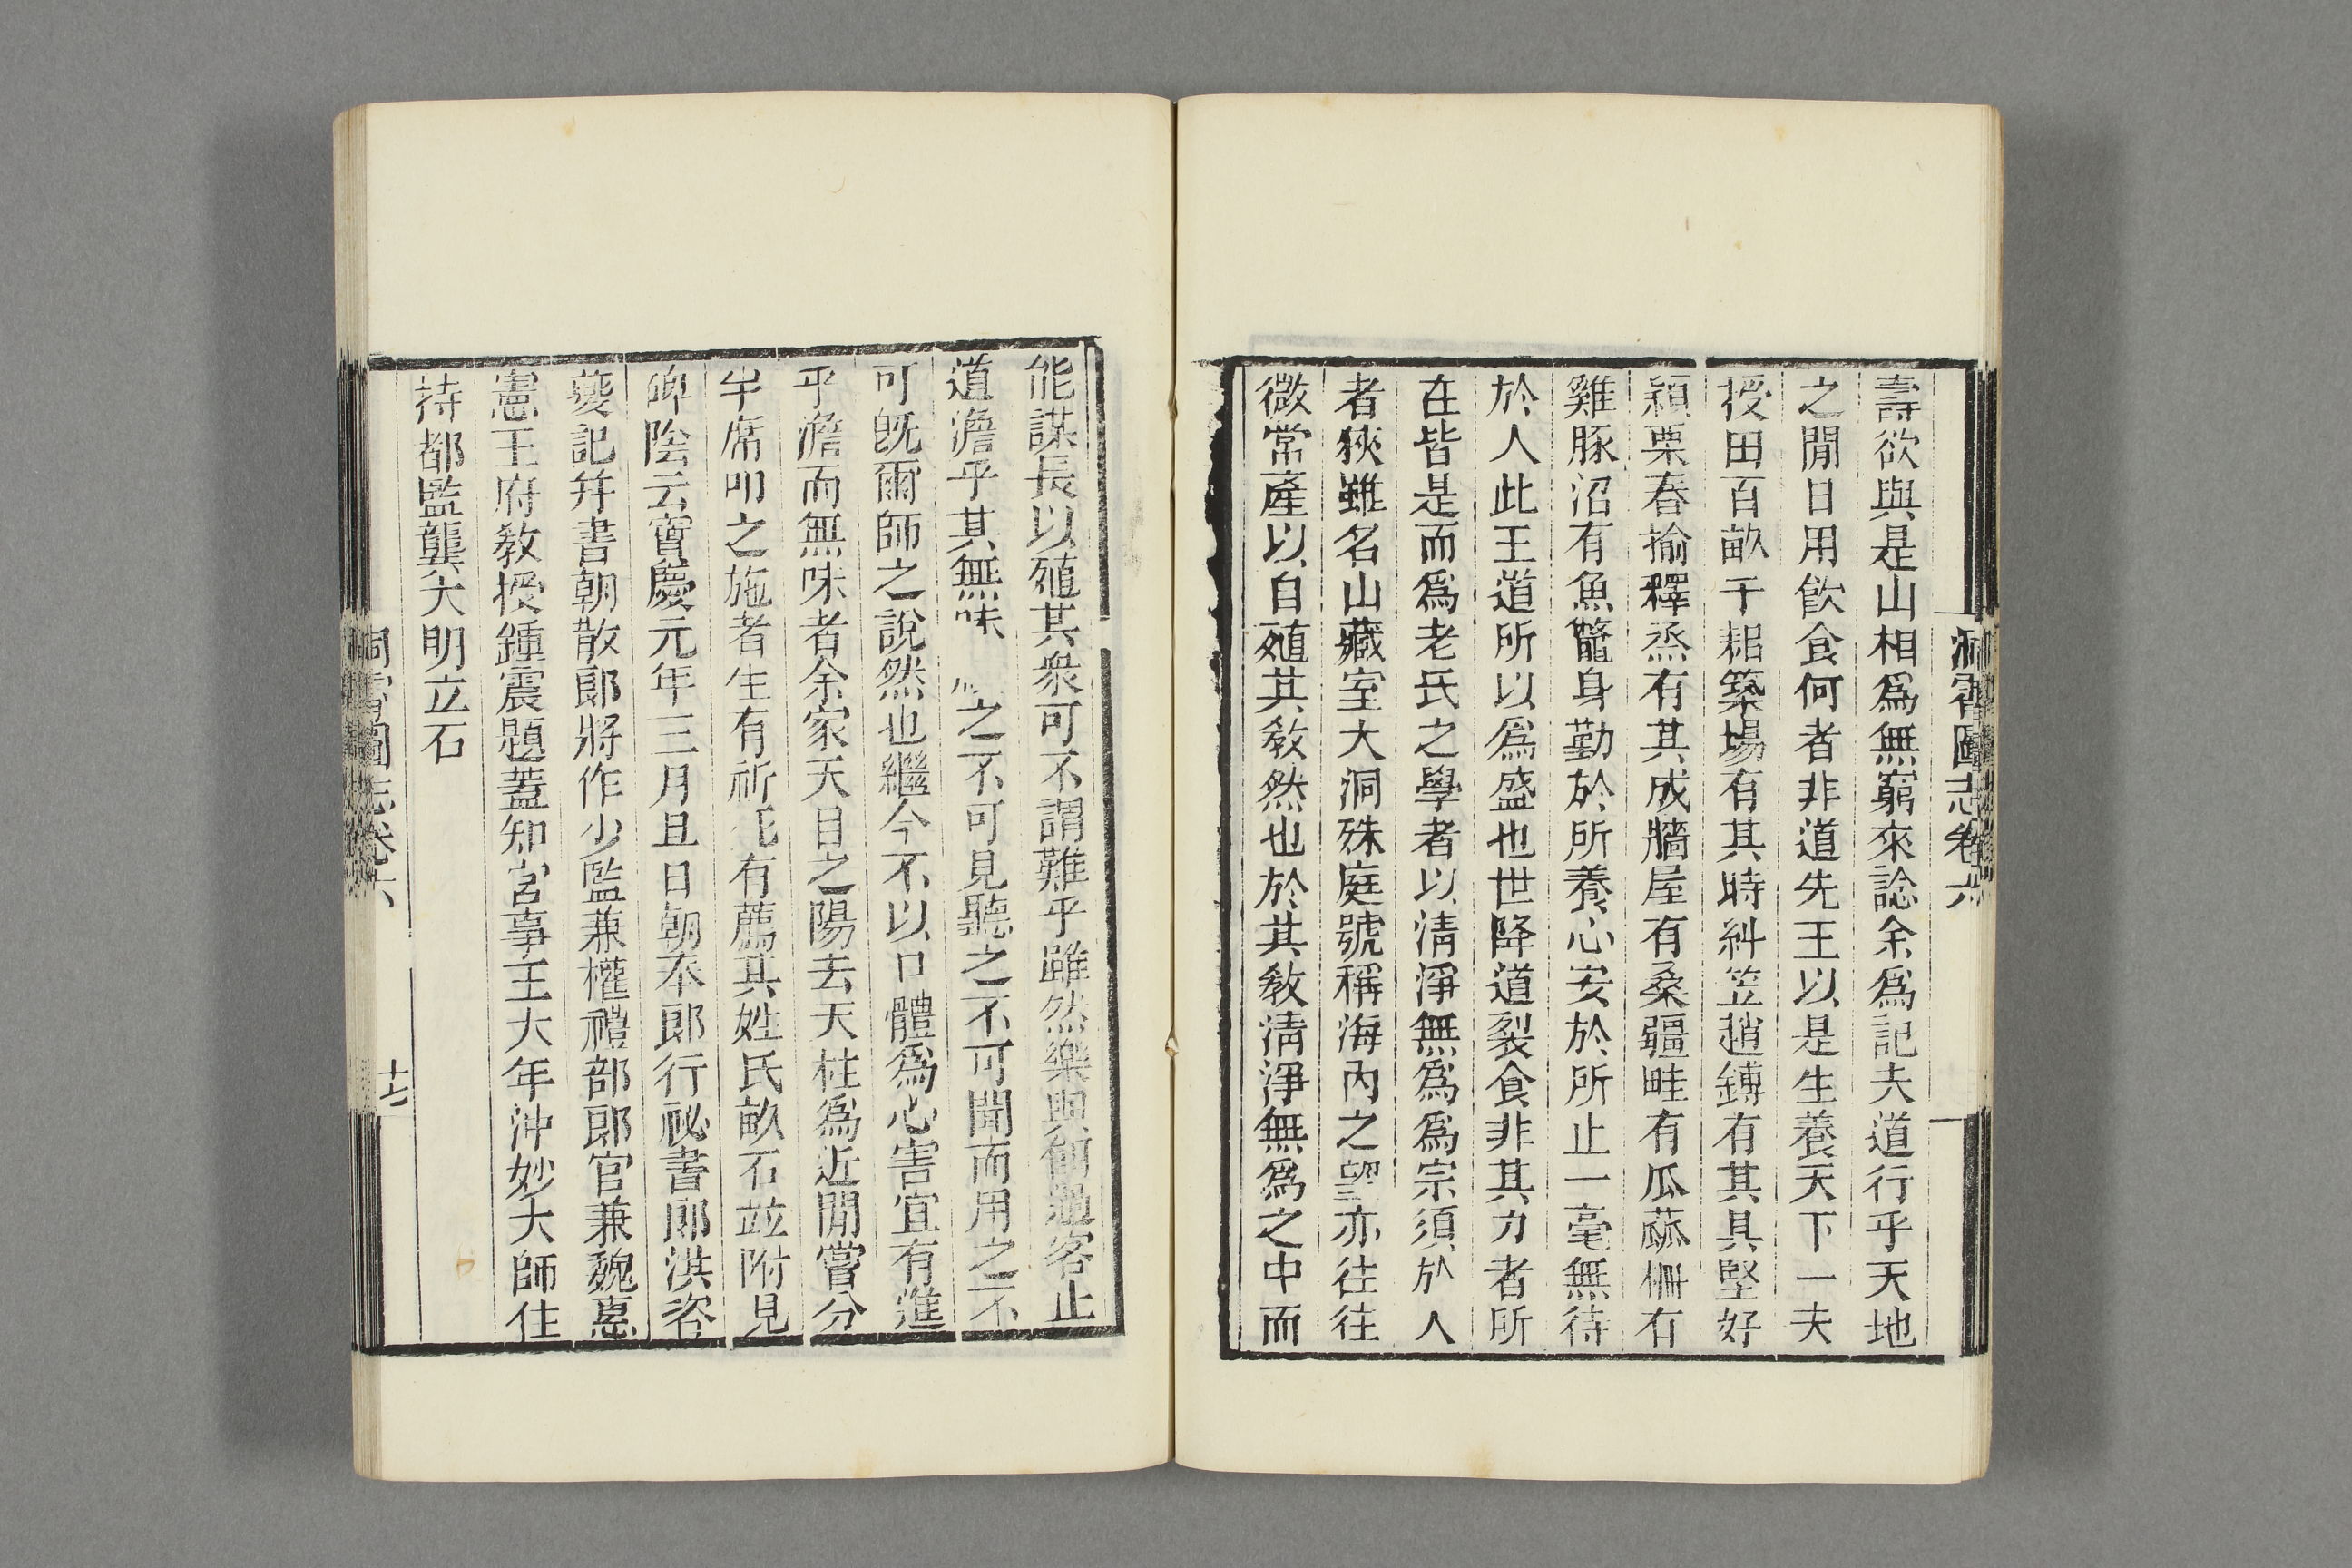 洞霄圖志卷六
壽欲與是山相爲無窮來諗余爲記夫道行乎天地
之閒日用飮食何者非道先王以是生養天下一夫
授田百畝干耜築場有其時糾笠趙鎛有其具堅好
穎栗舂揄釋烝有其成牆屋有桑疆畦有瓜蓏柵有
雞豚沼有魚鼈身勤於所養心安於所止一毫無待
於人此王道所以爲盛也世降道裂食非其力者所
在皆是而爲老氏之學者以淸淨無爲爲宗須於人
者狹雖名山藏室大洞殊庭號稱海內之望亦往往
微常產以自殖其敎然也於其敎淸淨無爲之中而
能謀長以殖其衆可不謂難乎雖然樂與餌過客止
道澹乎其無味 之不可見聽之不可聞而用之不
可旣爾師之說然也繼今不以口體爲心害宜有進
乎澹而無味者余家天目之陽去天柱爲近閒嘗分
半席叩之施者生有祈死有薦其姓氏畝石竝附見
碑陰云寶慶元年三月旦日朝奉郎行祕書郎洪咨
夔記幷書朝散郎將作少監兼權禮部郎官兼魏惠
憲王府敎授鍾震題蓋知宮事王大年沖妙大師住
持都監龔大明立石
洞霄圖志卷六
十七